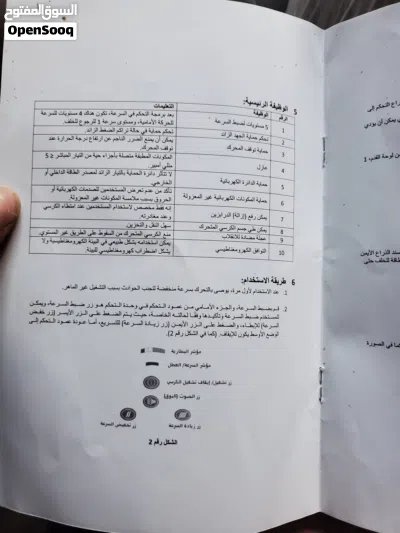 السوق المفتوح
OpenSooq
5 الوظيفة الرئيسية:
رقم الوظيفة التعليمات
1 5 مستويات لضبط السرعة بعد برمجة التحكم في السرعة، تكون هناك 4 مستويات للسرعة
للحركة الأمامية، ومستوى سرعة 1 للرجوع للخلف.
2 حماية الجهد الزائد تحكم حماية في حالة تراكم الضغط الزائد.
3 حماية توقف المحرك يمكن أن يمنع الضرر الناجم عن ارتفاع درجة الحرارة عند
توقف المحرك.
4 عازل المكونات المطبقة متصلة بأجزاء حية من التيار المباشر ≤ 5
مللي أمبير.
5 حماية الدائرة الكهربائية لا تتأثر دائرة الحماية بالتيار الزائد لمصدر الطاقة الداخلي أو
الخارجي.
6 حماية المكونات الكهربائية غير المعزولة تأكد من عدم تعرض المستخدمين للصدمات الكهربائية أو
الحروق بسبب ملامسة المكونات غير المعزولة
7 يمكن رفع (إزالة) الدرابزين إنه فقط مخصص لاستخدام المستخدمين عند امتطاء الكرسي
وعند مغادرته.
8 يمكن طي جسم الكرسي المتحرك سهل النقل والتخزين
9 عجلة مضادة للانقلاب منع الكرسي المتحرك من السقوط على الطريق غير المستوي
10 التوافق الكهرومغناطيسي يمكن استخدامه بشكل طبيعي في البيئة الكهرومغناطيسية ولا
يشكل اضطراب كهرومغناطيسي للبيئة.
6 طريقة الاستخدام:
1. عند الاستخدام لأول مرة، يوصى بالتحرك بسرعة منخفضة لتجنب الحوادث بسبب التشغيل غير الماهر.
2. لوضبط السرعة، والجزء الأمامي من عمود التحكم في وحدة التحكم هو زر ضبط السرعة، ويمكن
للمستخدم ضبط السرعة وتأكيدها وفقًا لحالته الخاصة، حيث يتم الضغط على الزر الأيسر (زر خفض
السرعة) للإبطاء، والضغط على الزر الأيمن (زر زيادة السرعة) للتسريع، أما عودة عمود التحكم إلى
الوضع الأوسط يكون للإيقاف. (كما في الشكل رقم 2).
مؤشر البطارية
مؤشر السرعة/العطل
زر تشغيل/ إيقاف تشغيل الكرسي
زر الصوت (البوق)
زر زيادة السرعة زر تخفيض السرعة
الشكل رقم 2
الذراع التحكم إلى
يمكن أن يؤدي
من لوحة القدم، 1
مسند الذراع الأيمن
كما في الصورة